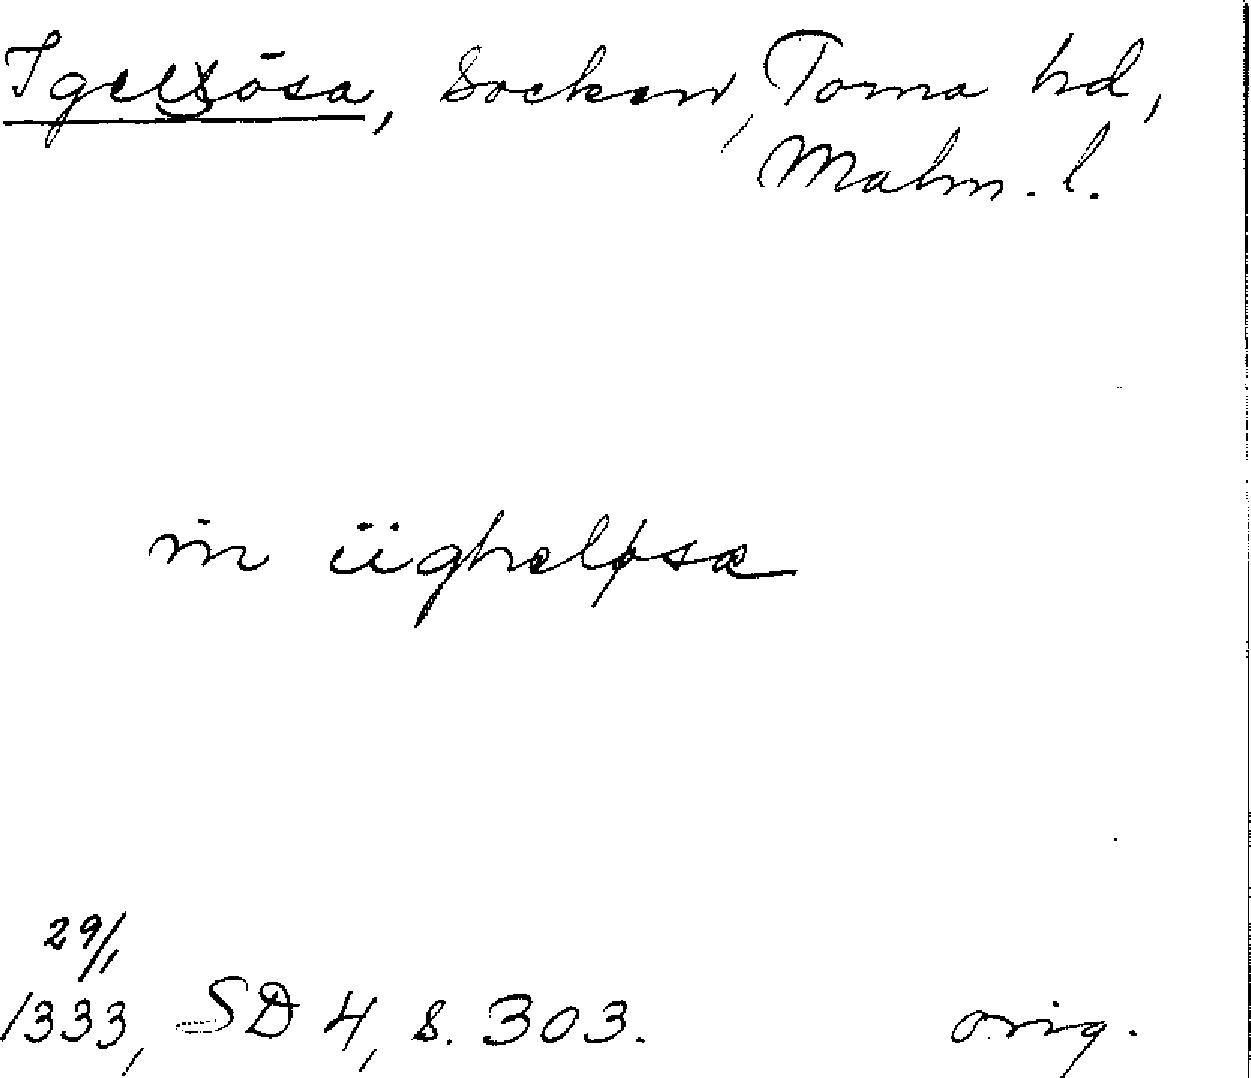 Igelsösa, socken, Torna hd,
Malm. l.
in ügheløsæ
29/1
1333, SD 4, s. 303. orig.